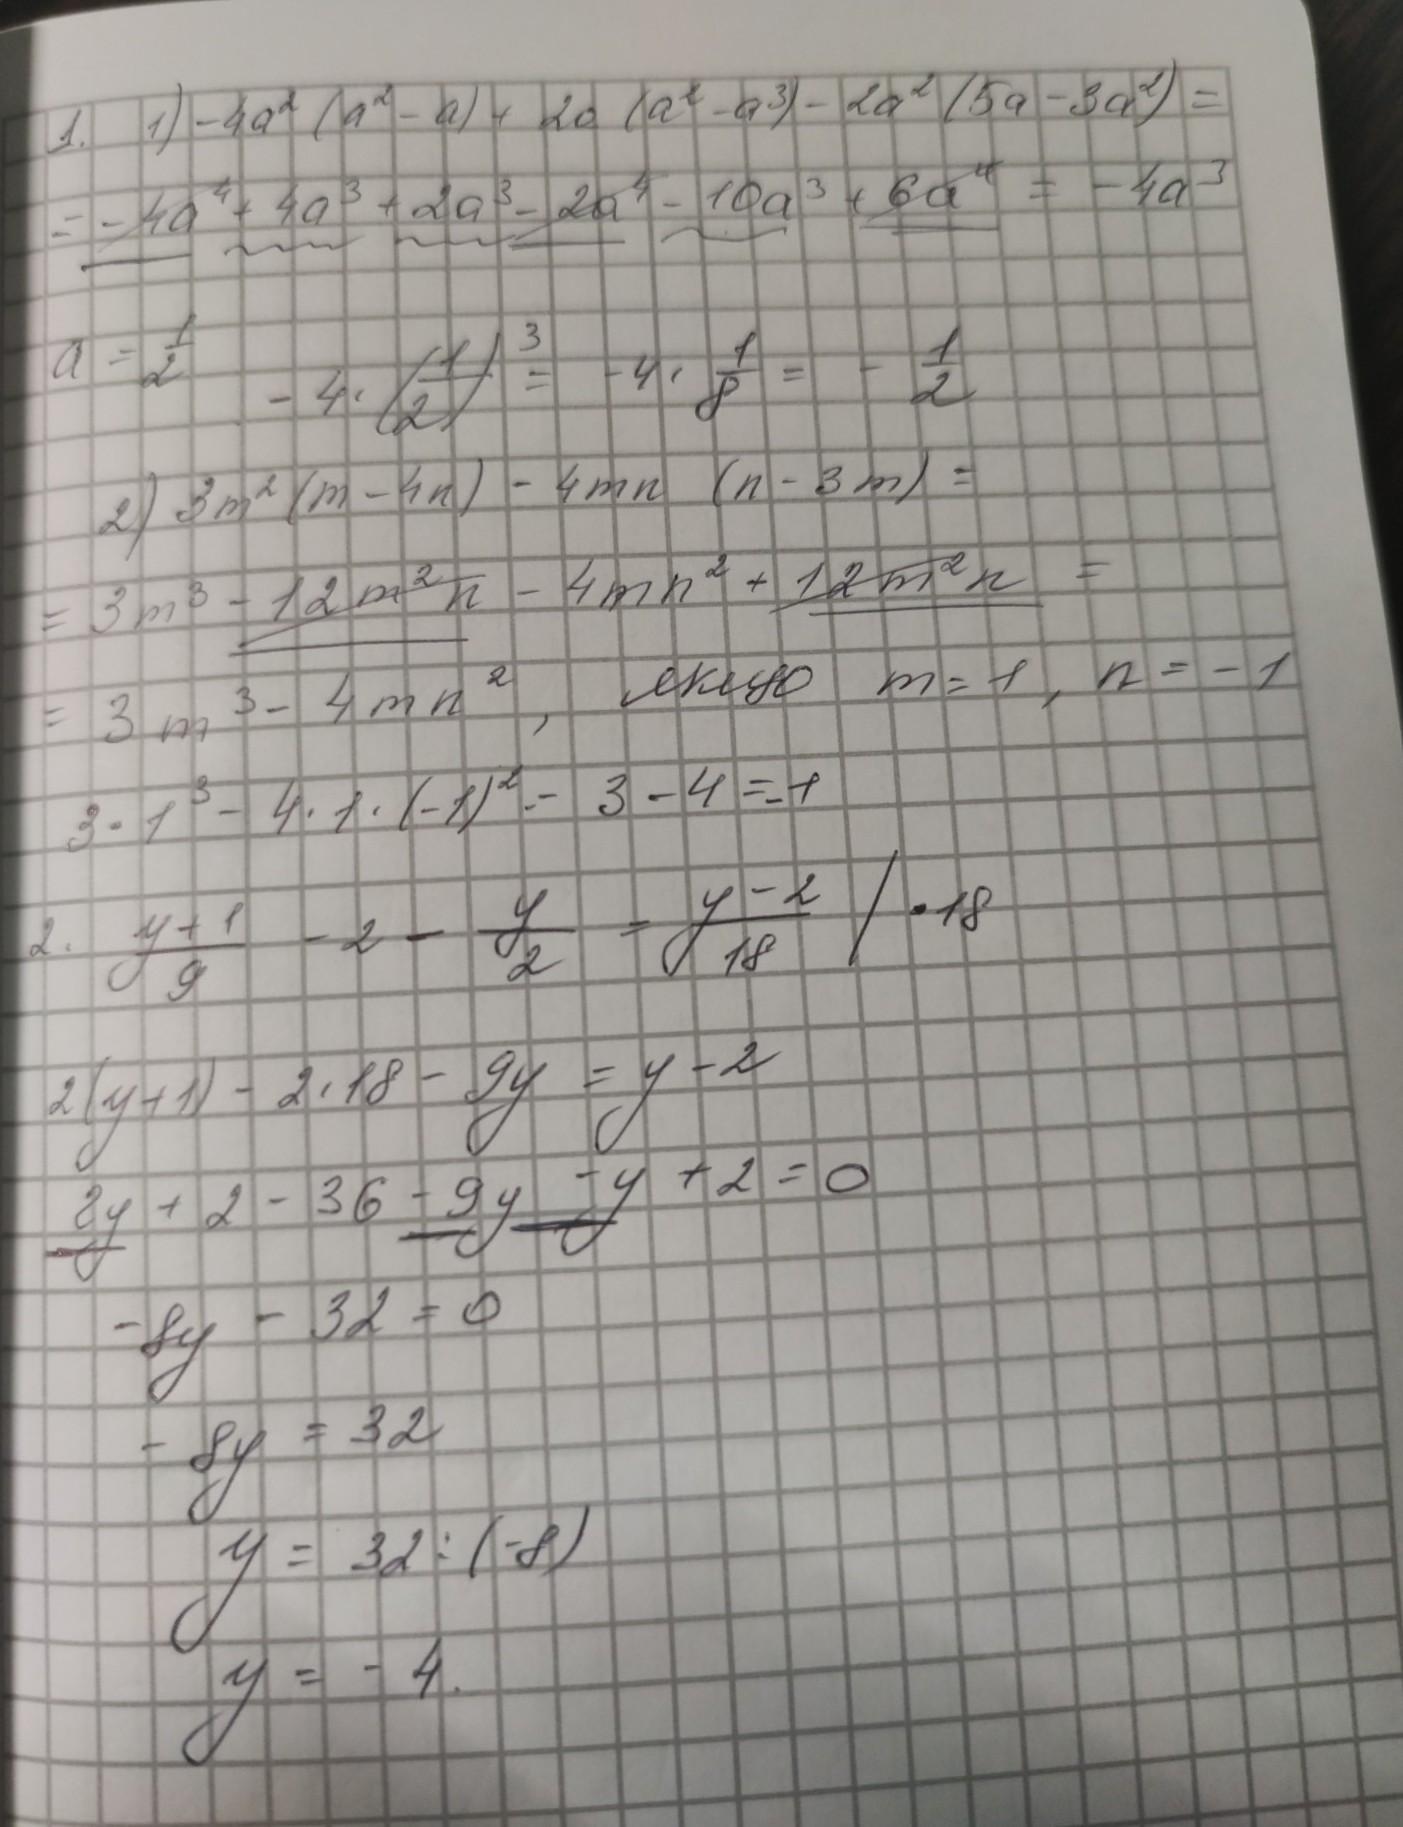 1. 1) -4a² (a² - a) + 2a (a² - a³) - 2a² (5a - 3a²) =
= -4a⁴ + 4a³ + 2a³ - 2a⁴ - 10a³ + 6a⁴ = -4a³
a = 1/2
-4 · (1/2)³ = -4 · 1/8 = - 1/2
2) 3m² (m - 4n) - 4mn (n - 3m) =
= 3m³ - 12m²n - 4mn² + 12m²n =
= 3m³ - 4mn², якщо m = 1, n = -1
3 · 1³ - 4 · 1 · (-1)² = 3 - 4 = -1
2. (y+1)/9 - 2 - y/2 = (y-2)/18 / · 18
2(y+1) - 2 · 18 - 9y = y - 2
2y + 2 - 36 - 9y - y + 2 = 0
-8y - 32 = 0
- 8y = 32
y = 32 : (-8)
y = - 4.